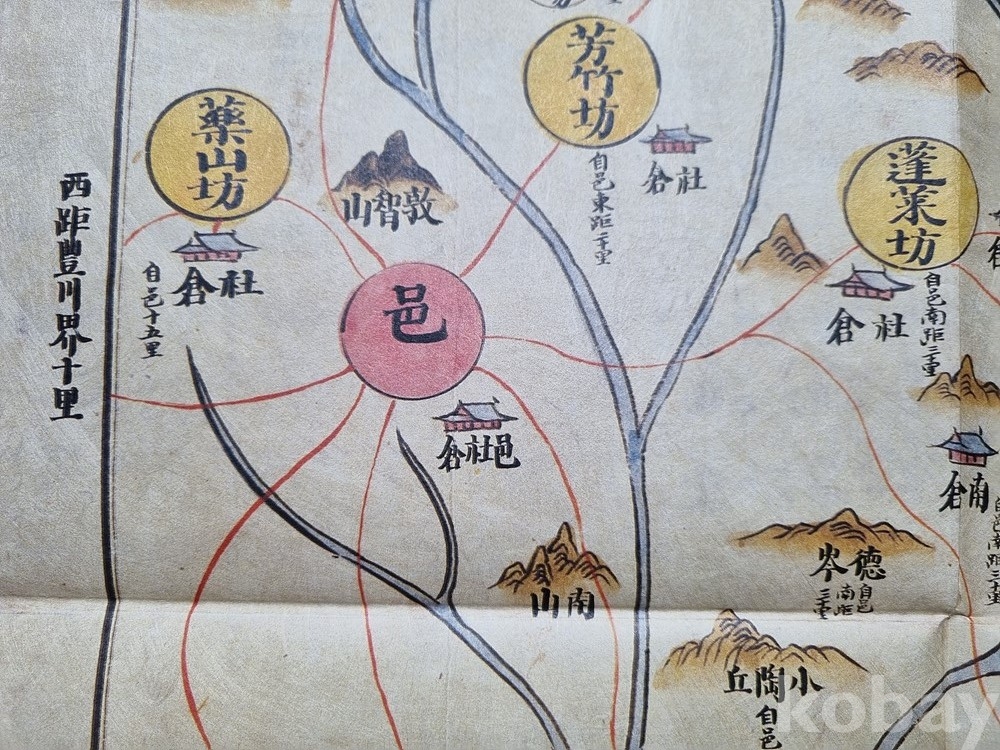 芳竹坊
自邑東距二十里
社倉
藥山坊
社倉
自邑十五里
西距豐川界十里
敦智山
邑
邑社倉
蓬萊坊
社倉
自邑南距三十里
南倉
自邑南距三十里
南山
德岑
自邑南距三十里
小陶丘
自邑
kobay